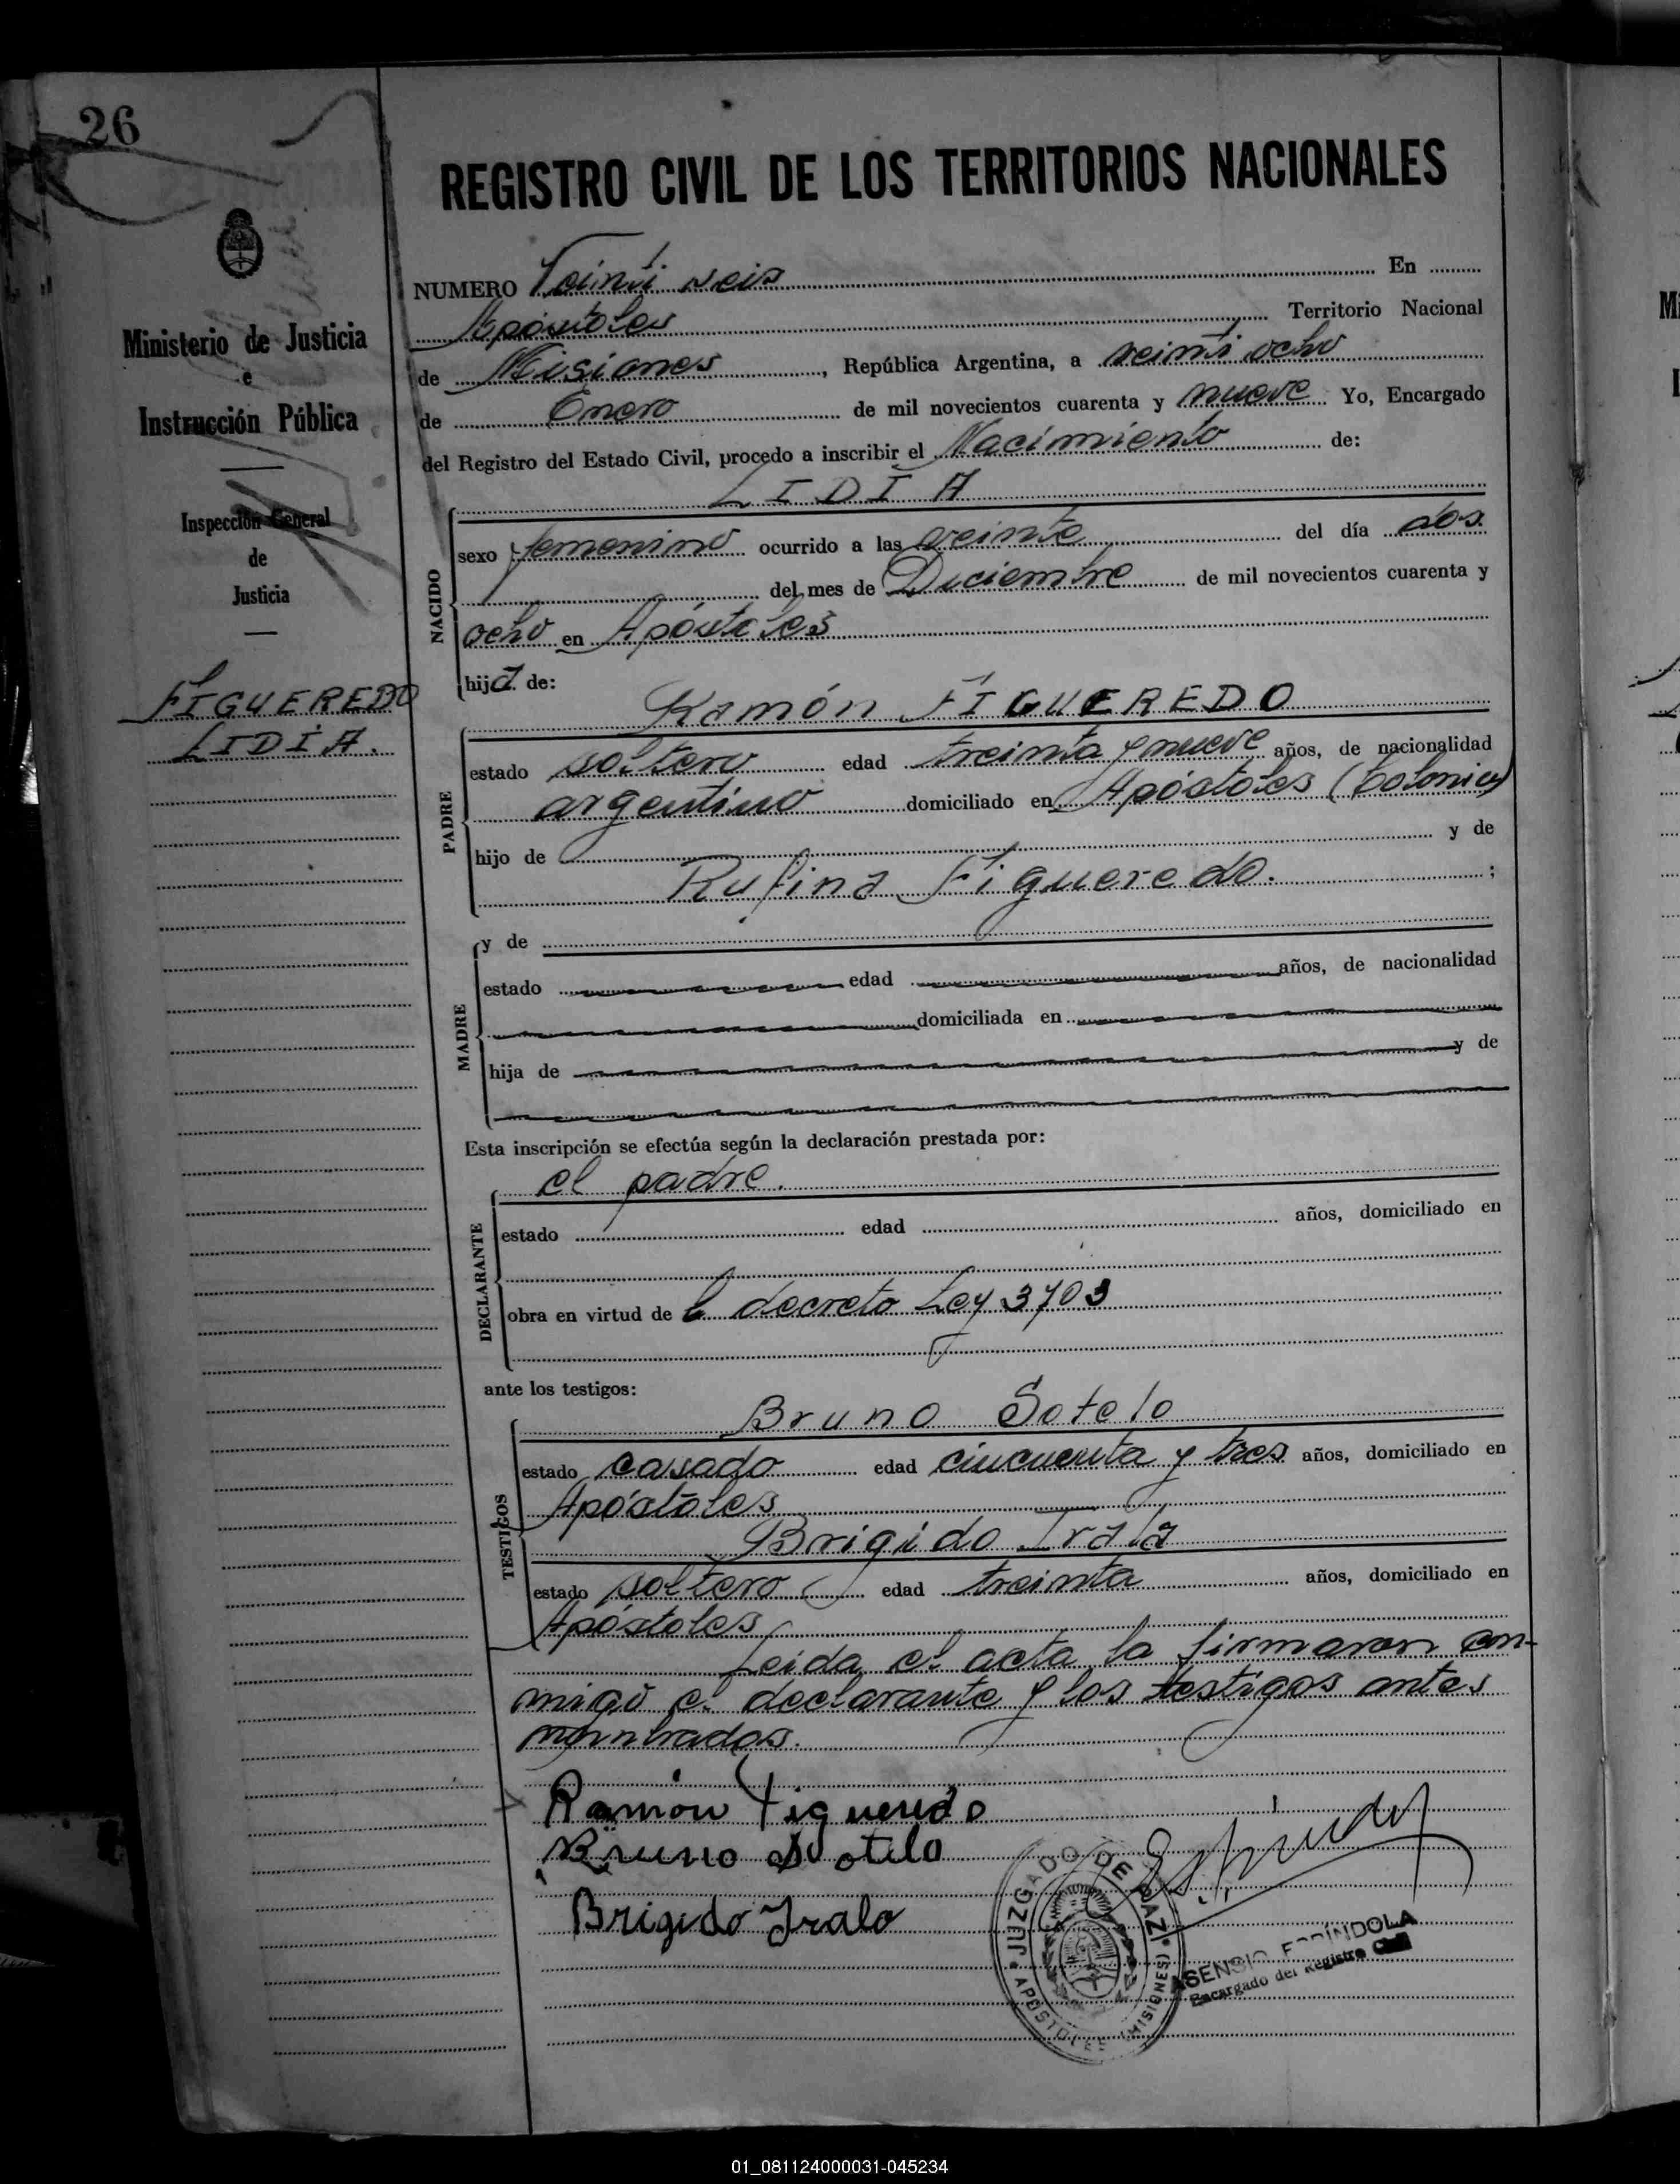 26
REGISTRO CIVIL DE LOS TERRITORIOS NACIONALES
NUMERO Veinti seis En
Apóstoles Territorio Nacional
de Misiones, República Argentina, a veinti ocho
de Enero de mil novecientos cuarenta y nueve Yo, Encargado
del Registro del Estado Civil, procedo a inscribir el Nacimiento de:
LIDIA
Ministerio de Justicia
e
Instrucción Pública
Inspección General
de
Justicia
FIGUEREDO
LIDIA.
NACIDO
sexo femenino ocurrido a las veinte del día dos
del mes de Diciembre de mil novecientos cuarenta y
ocho en Apóstoles
hija de:
Ramón FIGUEREDO
PADRE
estado soltero edad treinta y nueve años, de nacionalidad
argentino domiciliado en Apóstoles (Colonia)
hijo de y de
Rufina Figueredo. ;
MADRE
y de
estado edad años, de nacionalidad
domiciliada en
hija de y de
Esta inscripción se efectúa según la declaración prestada por:
el padre.
DECLARANTE
estado edad años, domiciliado en
obra en virtud de l decreto Ley 3703
ante los testigos:
Bruno Sotelo
TESTIGOS
estado casado edad cincuenta y tres años, domiciliado en
Apóstoles
Brigido Irala
estado soltero edad treinta años, domiciliado en
Apóstoles
Leida el acta la firmaron con-
migo el declarante y los testigos antes
nombrados.
Ramón Figueredo
Bruno Sotelo
Brigido Irala
JUZGADO DE PAZ
APOSTOLES (MISIONES)
ASENSIO ESPÍNDOLA
Encargado del Registro Civil
01_081124000031-045234